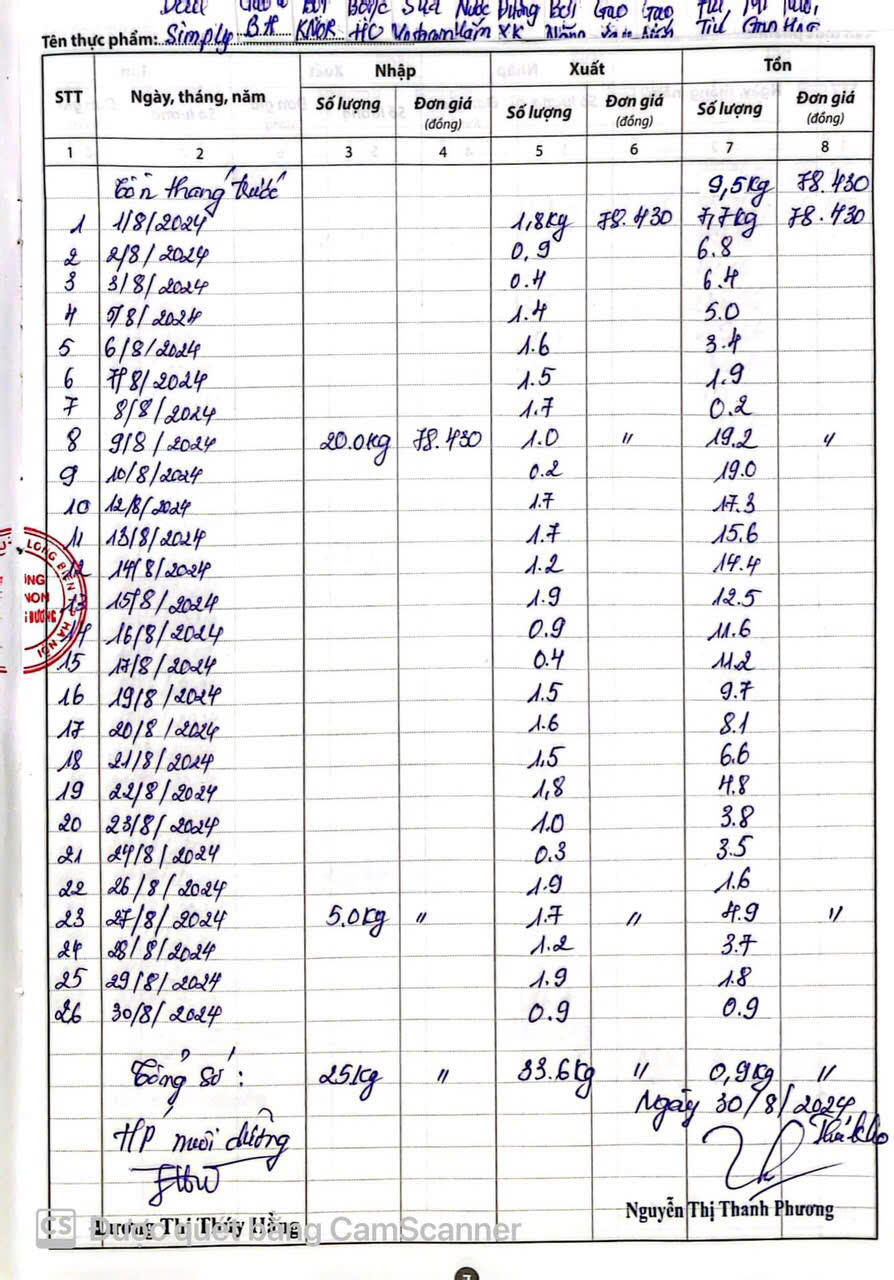 Tên thực phẩm: Simply B.A KNOR
Nhập Xuất Tồn
STT Ngày, tháng, năm Số lượng Đơn giá (đồng) Số lượng Đơn giá (đồng) Số lượng Đơn giá (đồng)
1 2 3 4 5 6 7 8
Tồn tháng trước 9,5kg 78.430
1 1/8/2024 1,8kg 78.430 7,7kg 78.430
2 2/8/2024 0,9 6.8
3 3/8/2024 0.4 6.4
4 5/8/2024 1.4 5.0
5 6/8/2024 1.6 3.4
6 7/8/2024 1.5 1.9
7 8/8/2024 1.7 0.2
8 9/8/2024 20.0kg 78.430 1.0 " 19.2 "
9 10/8/2024 0.2 19.0
10 12/8/2024 1.7 17.3
11 13/8/2024 1.7 15.6
12 14/8/2024 1.2 14.4
13 15/8/2024 1.9 12.5
14 16/8/2024 0.9 11.6
15 17/8/2024 0.4 11.2
16 19/8/2024 1.5 9.7
17 20/8/2024 1.6 8.1
18 21/8/2024 1,5 6.6
19 22/8/2024 1,8 4.8
20 23/8/2024 1.0 3.8
21 24/8/2024 0.3 3.5
22 26/8/2024 1.9 1.6
23 27/8/2024 5.0kg " 1.7 " 4.9 "
24 28/8/2024 1.2 3.7
25 29/8/2024 1.9 1.8
26 30/8/2024 0.9 0.9
Tổng số: 25kg " 33.6kg " 0,9kg "
Ngày 30/8/2024
HP nuôi dưỡng Thủ kho
Dương Thị Thúy Hằng Nguyễn Thị Thanh Phương
CS Được quét bằng CamScanner
7
LONG BIÊN
HÀ NỘI